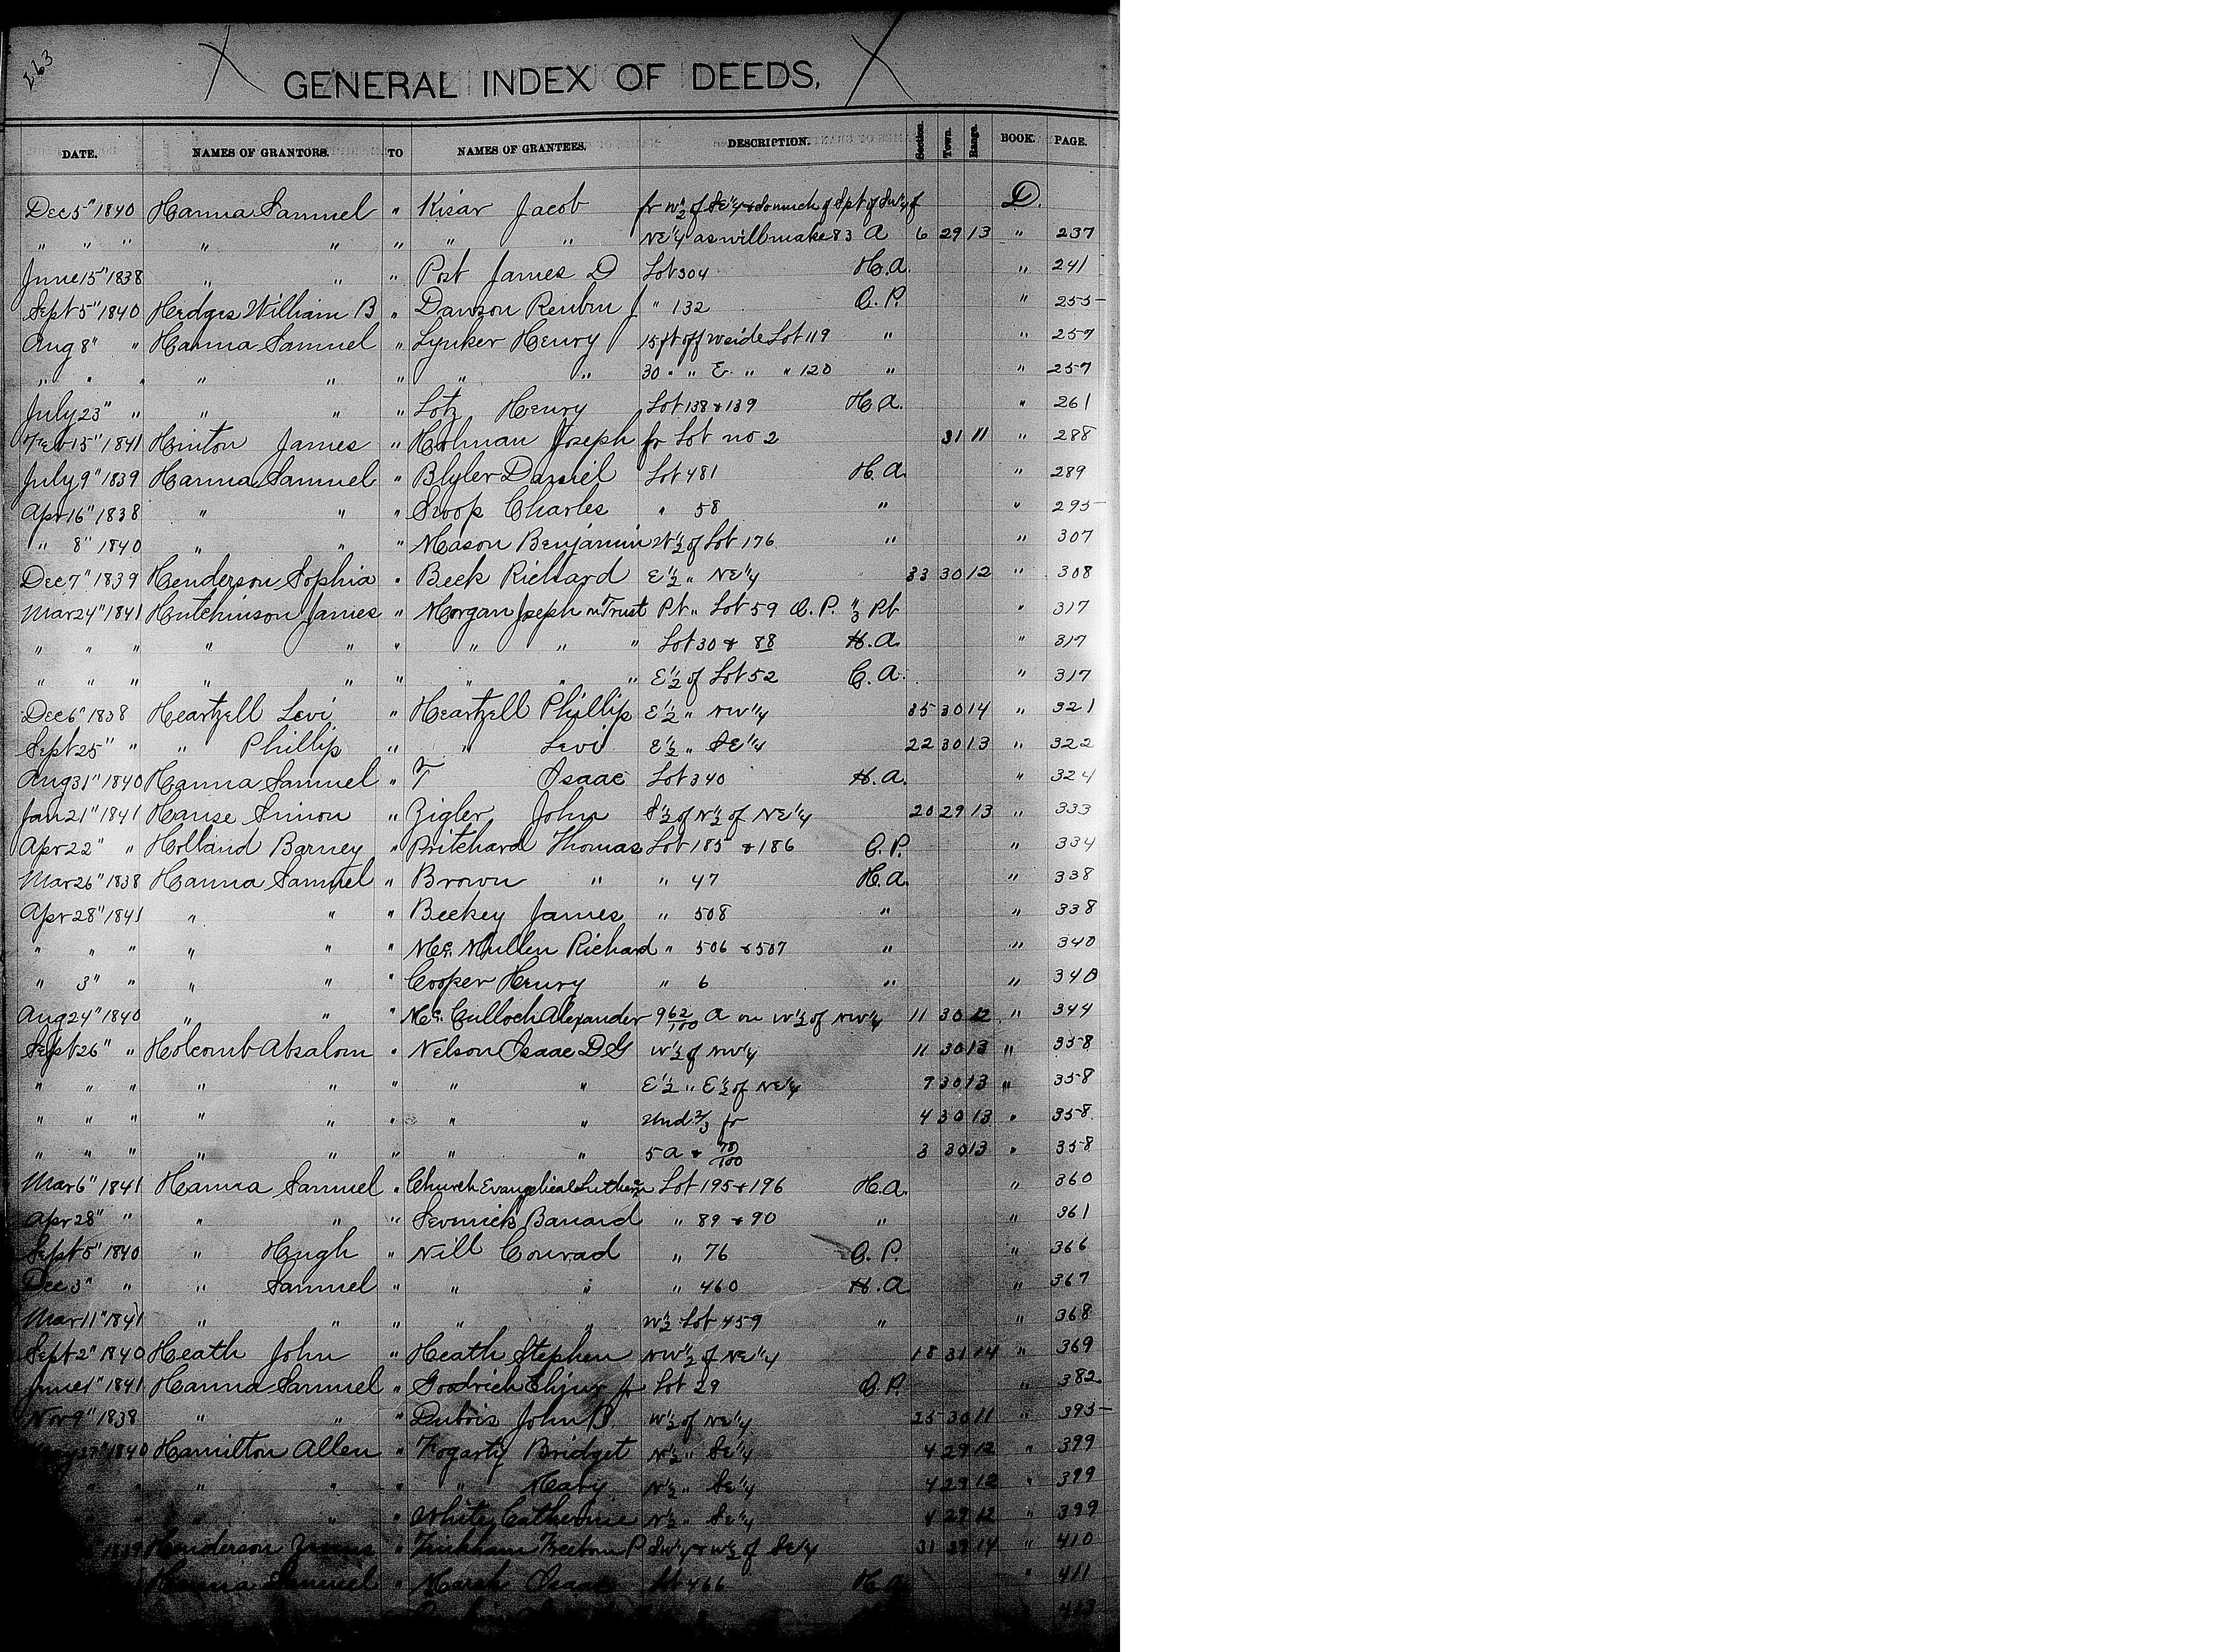 263
GENERAL INDEX OF DEEDS.
DATE. NAMES OF GRANTORS. TO NAMES OF GRANTEES. DESCRIPTION. Section. Town. Range. BOOK. PAGE.
Dec 5" 1840 Hanna Samuel " Kisar Jacob fr W½ of SE¼ & so much of S pt of SW¼ of D.
" " " " " " " " NE¼ as will make 83 A 6 29 13 " 237
June 15" 1838 " " " Post James D Lot 304 H.A. " 241
Sept 5" 1840 Hedges William B " Dawson Reubin J " 132 O.P. " 255
Aug 8" " Hanna Samuel " Lynker Henry 15 ft off W side Lot 119 " " 257
" " " " " " " " 30 " " E " " 120 " " 257
July 23" " " " " Lotz Henry Lot 138 & 139 H.A. " 261
Feb 15" 1841 Hinton James " Holman Joseph fr Lot no 2 31 11 " 288
July 9" 1839 Hanna Samuel " Blyler Daniel Lot 481 H.A. " 289
Apr 16" 1838 " " " Swop Charles " 58 " " 295
" 8" 1840 " " " Mason Benjamin W½ of Lot 176 " " 307
Dec 7" 1839 Henderson Sophia " Beck Richard E½ " NE¼ 33 30 12 " 308
Mar 24" 1841 Hutchinson James " Morgan Joseph in Trust Pt " Lot 59 O.P. Pt " 317
" " " " " " " " " Lot 30 & 88 H.A. " 317
" " " " " " " " " E½ of Lot 52 C.A. " 317
Dec 6" 1838 Heartzell Levi " Heartzell Phillip E½ " NW¼ 35 30 14 " 321
Sept 25" " " Phillip " " Levi E½ " SE¼ 22 30 13 " 322
Aug 31" 1840 Hanna Samuel " T Isaac Lot 340 H.A. " 324
Jan 21" 1841 Hause Simon " Zigler John S½ of N½ of NE¼ 20 29 13 " 333
Apr 22" " Holland Barney " Pritchard Thomas Lot 185 & 186 O.P. " 334
Mar 26" 1838 Hanna Samuel " Brown " " 47 H.A. " 338
Apr 28" 1841 " " " Beekey James " 508 " " 338
" " " " " " Mc Mullen Richard " 506 & 507 " " 340
" 3" " " " " Cooper Henry " 6 " " 340
Aug 24" 1840 " " " Mc Culloch Alexander 9 62/100 A on W½ of NW¼ 11 30 12 " 344
Sept 26" " Holcomb Absalom " Nelson Isaac D G W½ of NW¼ 11 30 13 " 358
" " " " " " " " E½ " E½ of NE¼ 9 30 13 " 358
" " " " " " " " Und ⅔ fr 4 30 13 " 358
" " " " " " " " 5 A & 70/100 3 30 13 " 358
Mar 6" 1841 Hanna Samuel " Church Evangelical Lutheran Lot 195 & 196 H.A. " 360
Apr 28" " " " " Banard " 89 & 90 " " 361
Sept 5" 1840 " Hugh " Nill Conrad " 76 O.P. " 366
Dec 3" " " Samuel " " " " 460 H.A " 367
Mar 11" 1841 " " " " " W½ Lot 459 " " 368
Sept 2" 1840 Heath John " Heath Stephen NW½ of NE¼ 18 31 14 " 369
June 1" 1841 Hanna Samuel " Goodrich Jr Lot 29 O.P. " 382
Nov 9" 1838 " " " Dubois John B. W½ of NE¼ 25 30 11 " 395
27" 1840 Hamilton Allen " Fogarty Bridget N½ " SE¼ 4 29 12 " 399
" " " " " " Mary N½ " SE¼ 4 29 12 " 399
" " " White Catherine N½ " SE¼ 4 29 12 " 399
1839 Henderson James " Tinkham Freeborn P SW¼ & W½ of SE¼ 31 29 14 " 410
Hanna Samuel " Marsh Isaac Lot 466 H.A. " 411